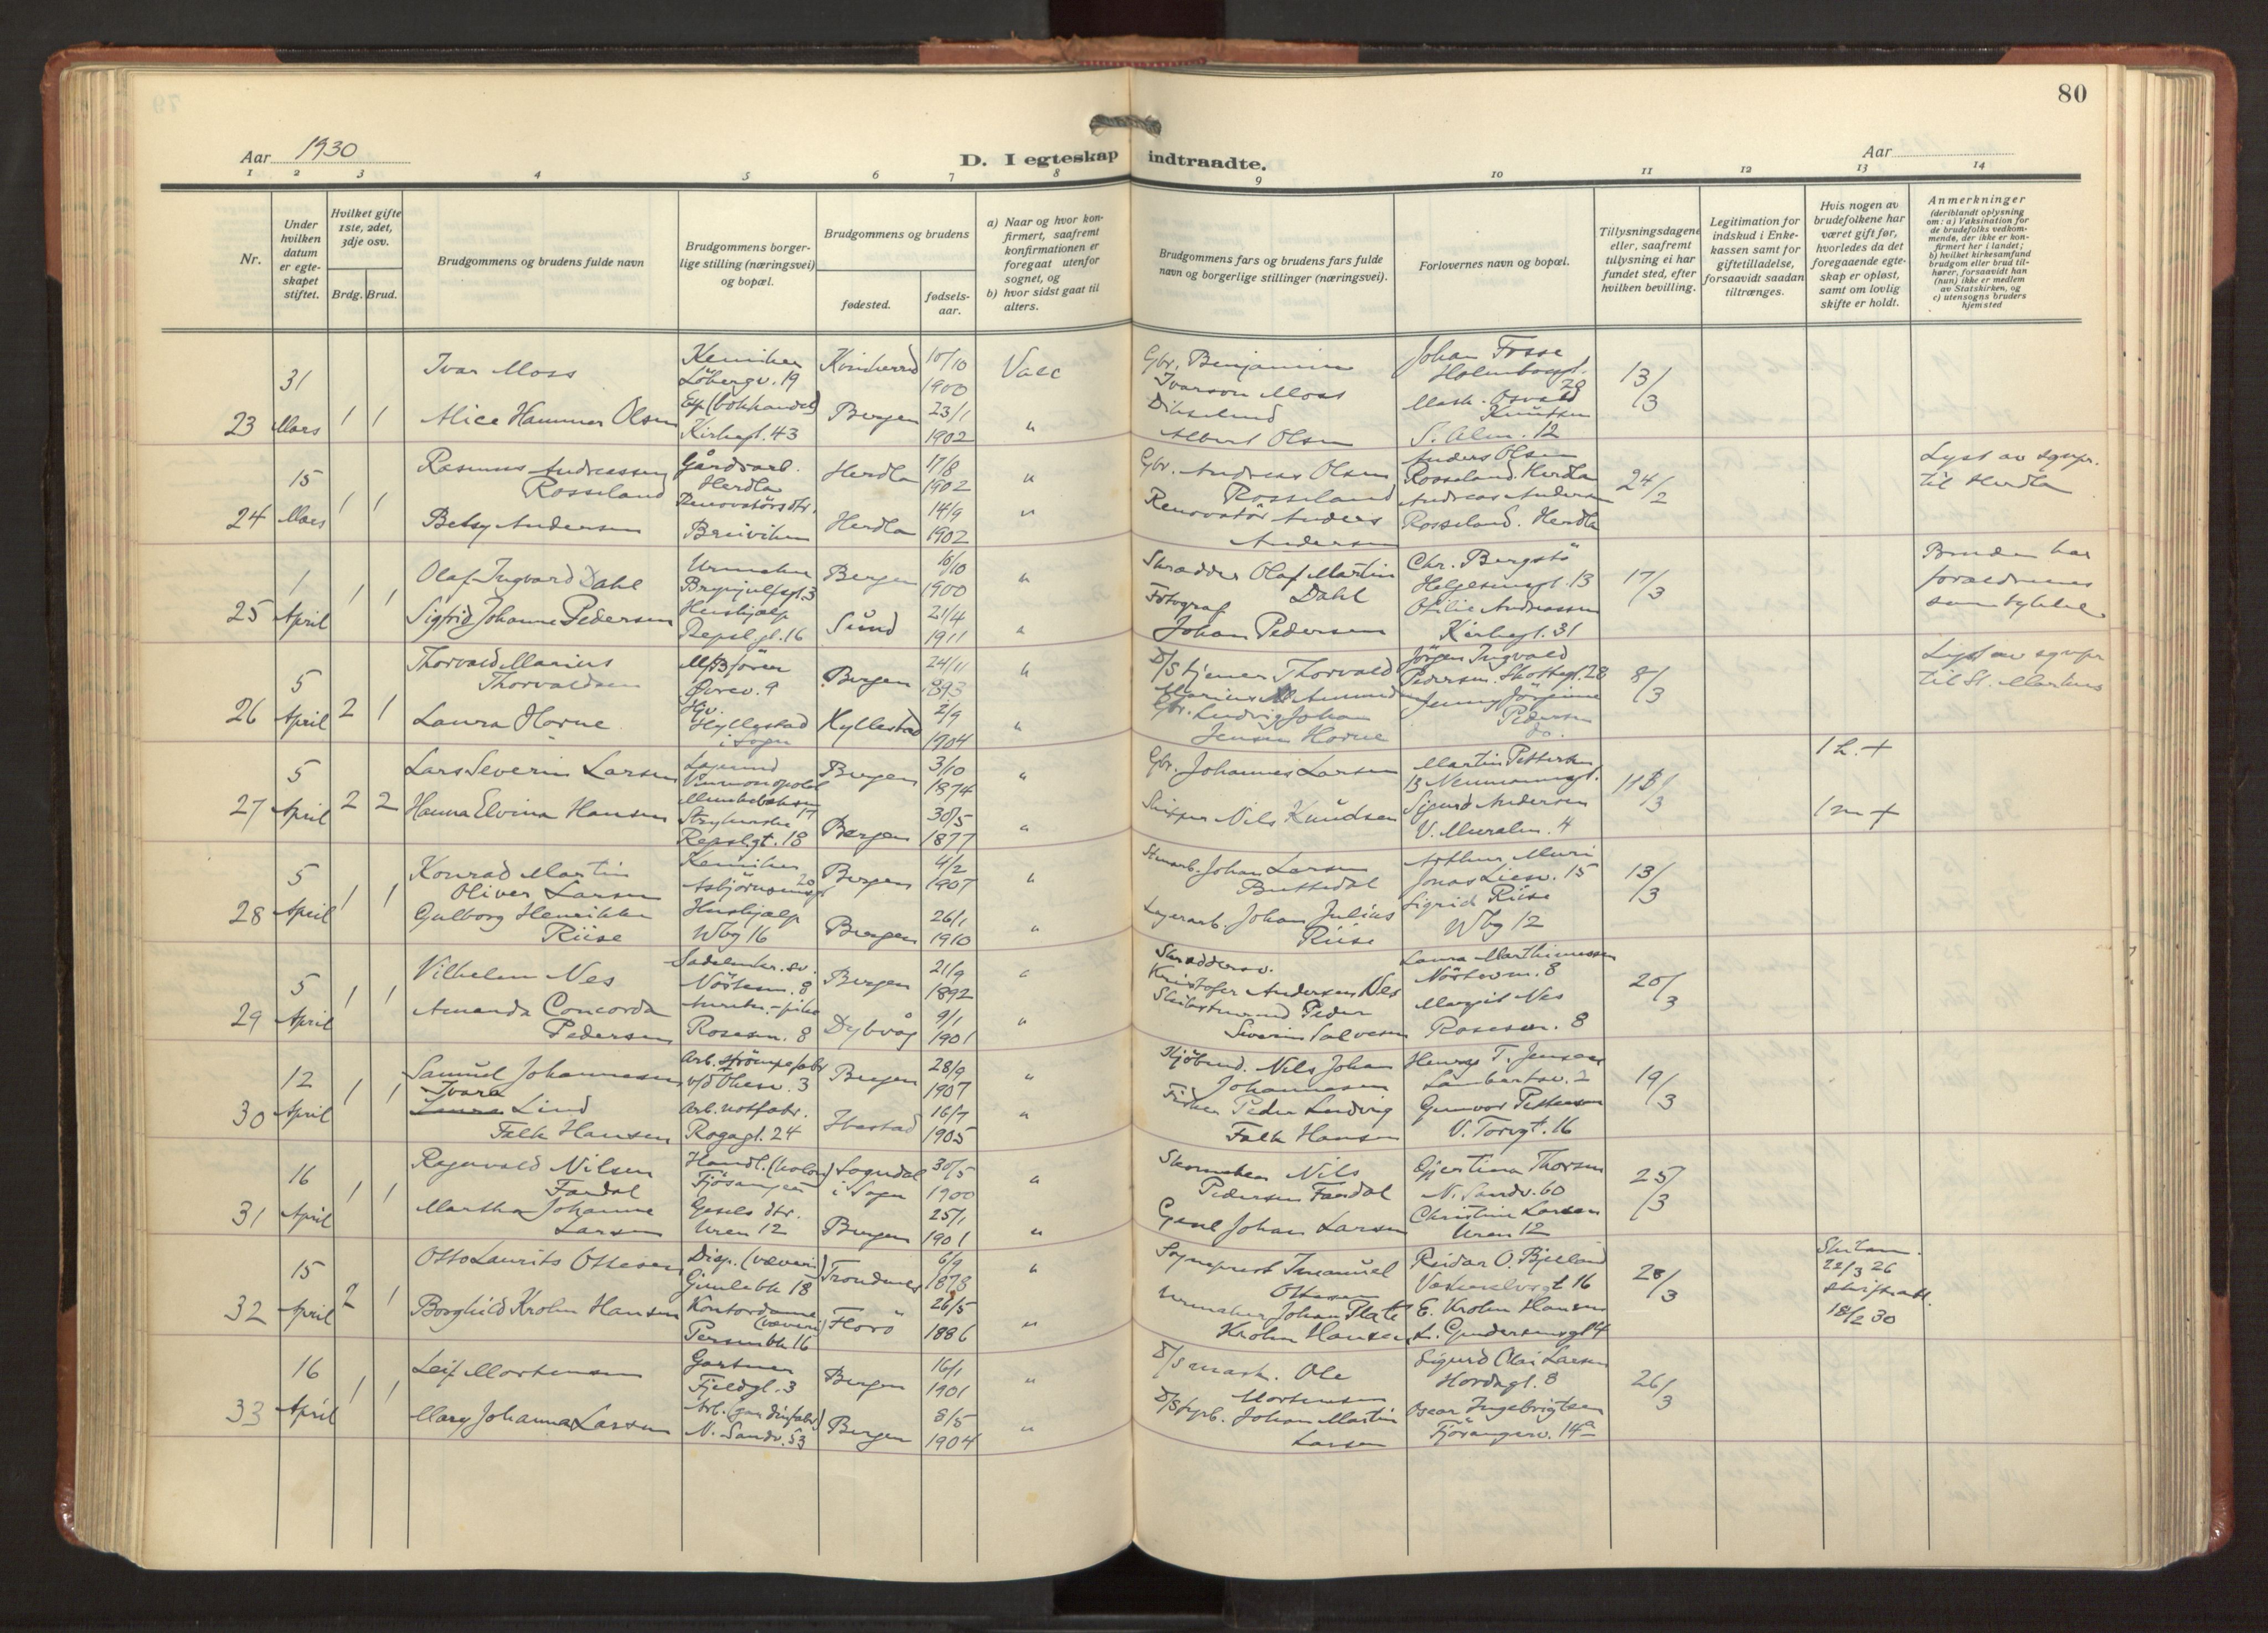 80
Aar 1930
D. I egteskap indtraadte.
Aar
1 2 3 4 5 6 7 8 9 10 11 12 13 14
Nr.
Under hvilken datum er egte-skapet stiftet.
Hvilket gifte 1ste, 2det, 3dje osv.
Brdg. Brud.
Brudgommens og brudens fulde navn
Brudgommens borger-lige stilling (næringsvei) og bopæl.
Brudgommens og brudens
fødested.
fødsels-aar.
a) Naar og hvor kon-firmert, saafremt konfirmationen er foregaat utenfor sognet, og
b) hvor sidst gaat til alters.
Brudgommens fars og brudens fars fulde navn og borgerlige stillinger (næringsvei).
Forlovernes navn og bopæl.
Tillysningsdagene eller, saafremt tillysning ei har fundet sted, efter hvilken bevilling.
Legitimation for indskud i Enke-kassen samt for giftetilladelse, forsaavidt saadan tiltrænges.
Hvis nogen av brudefolkene har været gift før, hvorledes da det foregaaende egte-skap er opløst, samt om lovlig skifte er holdt.
Anmerkninger
(deriblandt oplysning om: a) Vaksination for de brudefolks vedkom-mende, der ikke er kon-firmert her i landet; b) hvilket kirkesamfund brudgom eller brud til-hører, forsaavidt han (hun) ikke er medlem av Statskirken, og c) utensogns bruders hjemsted
23 31 Mars 1 1
Ivar Moss
Kemiker Löbergv. 19
Kvinherred 10/10 1900
Vacc
Gbr. Benjamin Ivarson Moss
Johan Fosse
13/3
Alice Hammer Olsen
Exp (bokhandel) Kirkegt. 43
Bergen 23/1 1902 "
Albert Olsen
Mask. Osvald Knutsen
S. Alm. 12
24 15 Mars 1 1
Rasmus Andreassen Rosseland
Gårdarb. Herdla
Herdla 17/8 1902 "
Gbr. Andreas Olsen Rosseland
Anders Olsen
Rosseland. Herdla
24/2
Lyst av sgnpr. til Herdla
Betsy Andersen
Renovatörsdtr. Breiviken
Herdla 14/9 1902 "
Renovatör Anders Andersen
Andreas Andersen
Rosseland. Herdla
25 1 April 1 1
Olaf Ingvard Dahl
Urmaker Brynjulfsgt. 3
Bergen 16/10 1900 "
Skrædder Olaf Martin Dahl
Chr. Bergstö
Helgesensgt. 13
17/3
Bruden har foraldrenes samtykke
Sigfrid Johanne Pedersen
Hushjælp Repsl.gt. 16
Sund 21/4 1911 "
Fotograf Johan Pedersen
Otilie Andreassen
Kirkegt. 31
26 5 April 2 1
Thorvald Marius Thorvaldsen
M/B fører Øvrev. 9
Bergen 24/11 1893 "
D/S tjener Thorvald Marius Amundsen
Jörgen Ingvald Pedersen. Skottegt. 28
8/3
Lyst av sgnpr til St. Markus
Laura Horne
Hyllestad i Sogn
Hyllestad 2/9 1904 "
Gbr. Ludvig Johan Jensen Horne
Jenny Jörgine Pedersen
do.
27 5 April 2 2
Lars Severin Larsen
Vinmonopolet
Bergen 3/10 1874 "
Gbr. Johannes Larsen
Martin Pettersen
13 Neumannsgt.
11/3
1 h. +
Hanna Elvina Hansen
Repslgt. 18
Bergen 30/5 1877 "
Skipper Nils Knudsen
Sigurd Andersen
V. Muralm. 4
1 m +
28 5 April 1 1
Konrad Martin Oliver Larsen
Kemiker Asbjörnsensgt 20
Bergen 4/2 1907 "
Stenarb. Johan Larsen
Arthur Muri
Jonas Liesv. 15
13/3
Gulborg Henrikke Riise
Hushjælp Wbg 16
Bergen 26/1 1910 "
Lagerarb. Johan Julius Riise
Sigrid Riise
Wbg 12
29 5 April 1 1
Vilhelm Nes
Sadelmkr. sv. Nöstem. 8
Bergen 21/9 1892 "
Skræddersv. Kristofer Andersen Nes
Laura Marthinussen
Nöstevm. 8
20/3
Amanda Concorda Pedersen
Rosesm. 8
Dybvåg 9/1 1901 "
Peder Severin Salvesen
Margit Nes
Rosesm. 8
30 12 April 1 1
Samuel Johannesen
Arb. strömpefabr v/d Ohesv. 3
Bergen 28/9 1907 "
Kjöbmd. Nils Johan Johannesen
Henry T. Jensen
Lambertsv. 2
19/3
Ivara Lind Falk Hansen
Arb. notfabr. Rogagt. 24
Ibestad 16/7 1905 "
Fisker Peder Ludvig Falk Hansen
Gunvor Pettersen
V. Torvgt. 16
31 16 April 1 1
Ragnvald Nilsen Fardal
Handl. (kolon) Fjösanger
Sogndal i Sogn 30/5 1900 "
Skomaker Nils Pedersen Fardal
Gjertina Thorsen
N. Sandv. 60
25/3
Martha Johanne Larsen
Gesels dtr. Uren 12
Bergen 25/1 1901 "
Johan Larsen
Christine Larsen
Uren 12
32 15 April 2 1
Otto Laurits Ottesen
Disp. (væveri) Gimlebk 18
Trondenes 6/9 1873 "
Sogneprest Imanuel Ottesen
Reidar O. Bjelland
28/3
22/3 26
18/2 30
Borghild Krohn Hansen
Kontordame (væveri) Persenbk 16
Florö 26/5 1886 "
Urmaker Johan Plate Krohn Hansen
E. Krohn Hansen
33 16 April 1 1
Leif Mortensen
Gartner Fjeldgt. 3
Bergen 16/1 1901 "
D/S mask. Ole Mortensen
Sigurd Olai Larsen
Hordagt. 8
26/3
Mary Johanna Larsen
N. Sandv. 53
Bergen 8/5 1904 "
Johan Martin Larsen
Oscar Ingebrigtsen
Fjösangerv. 14a